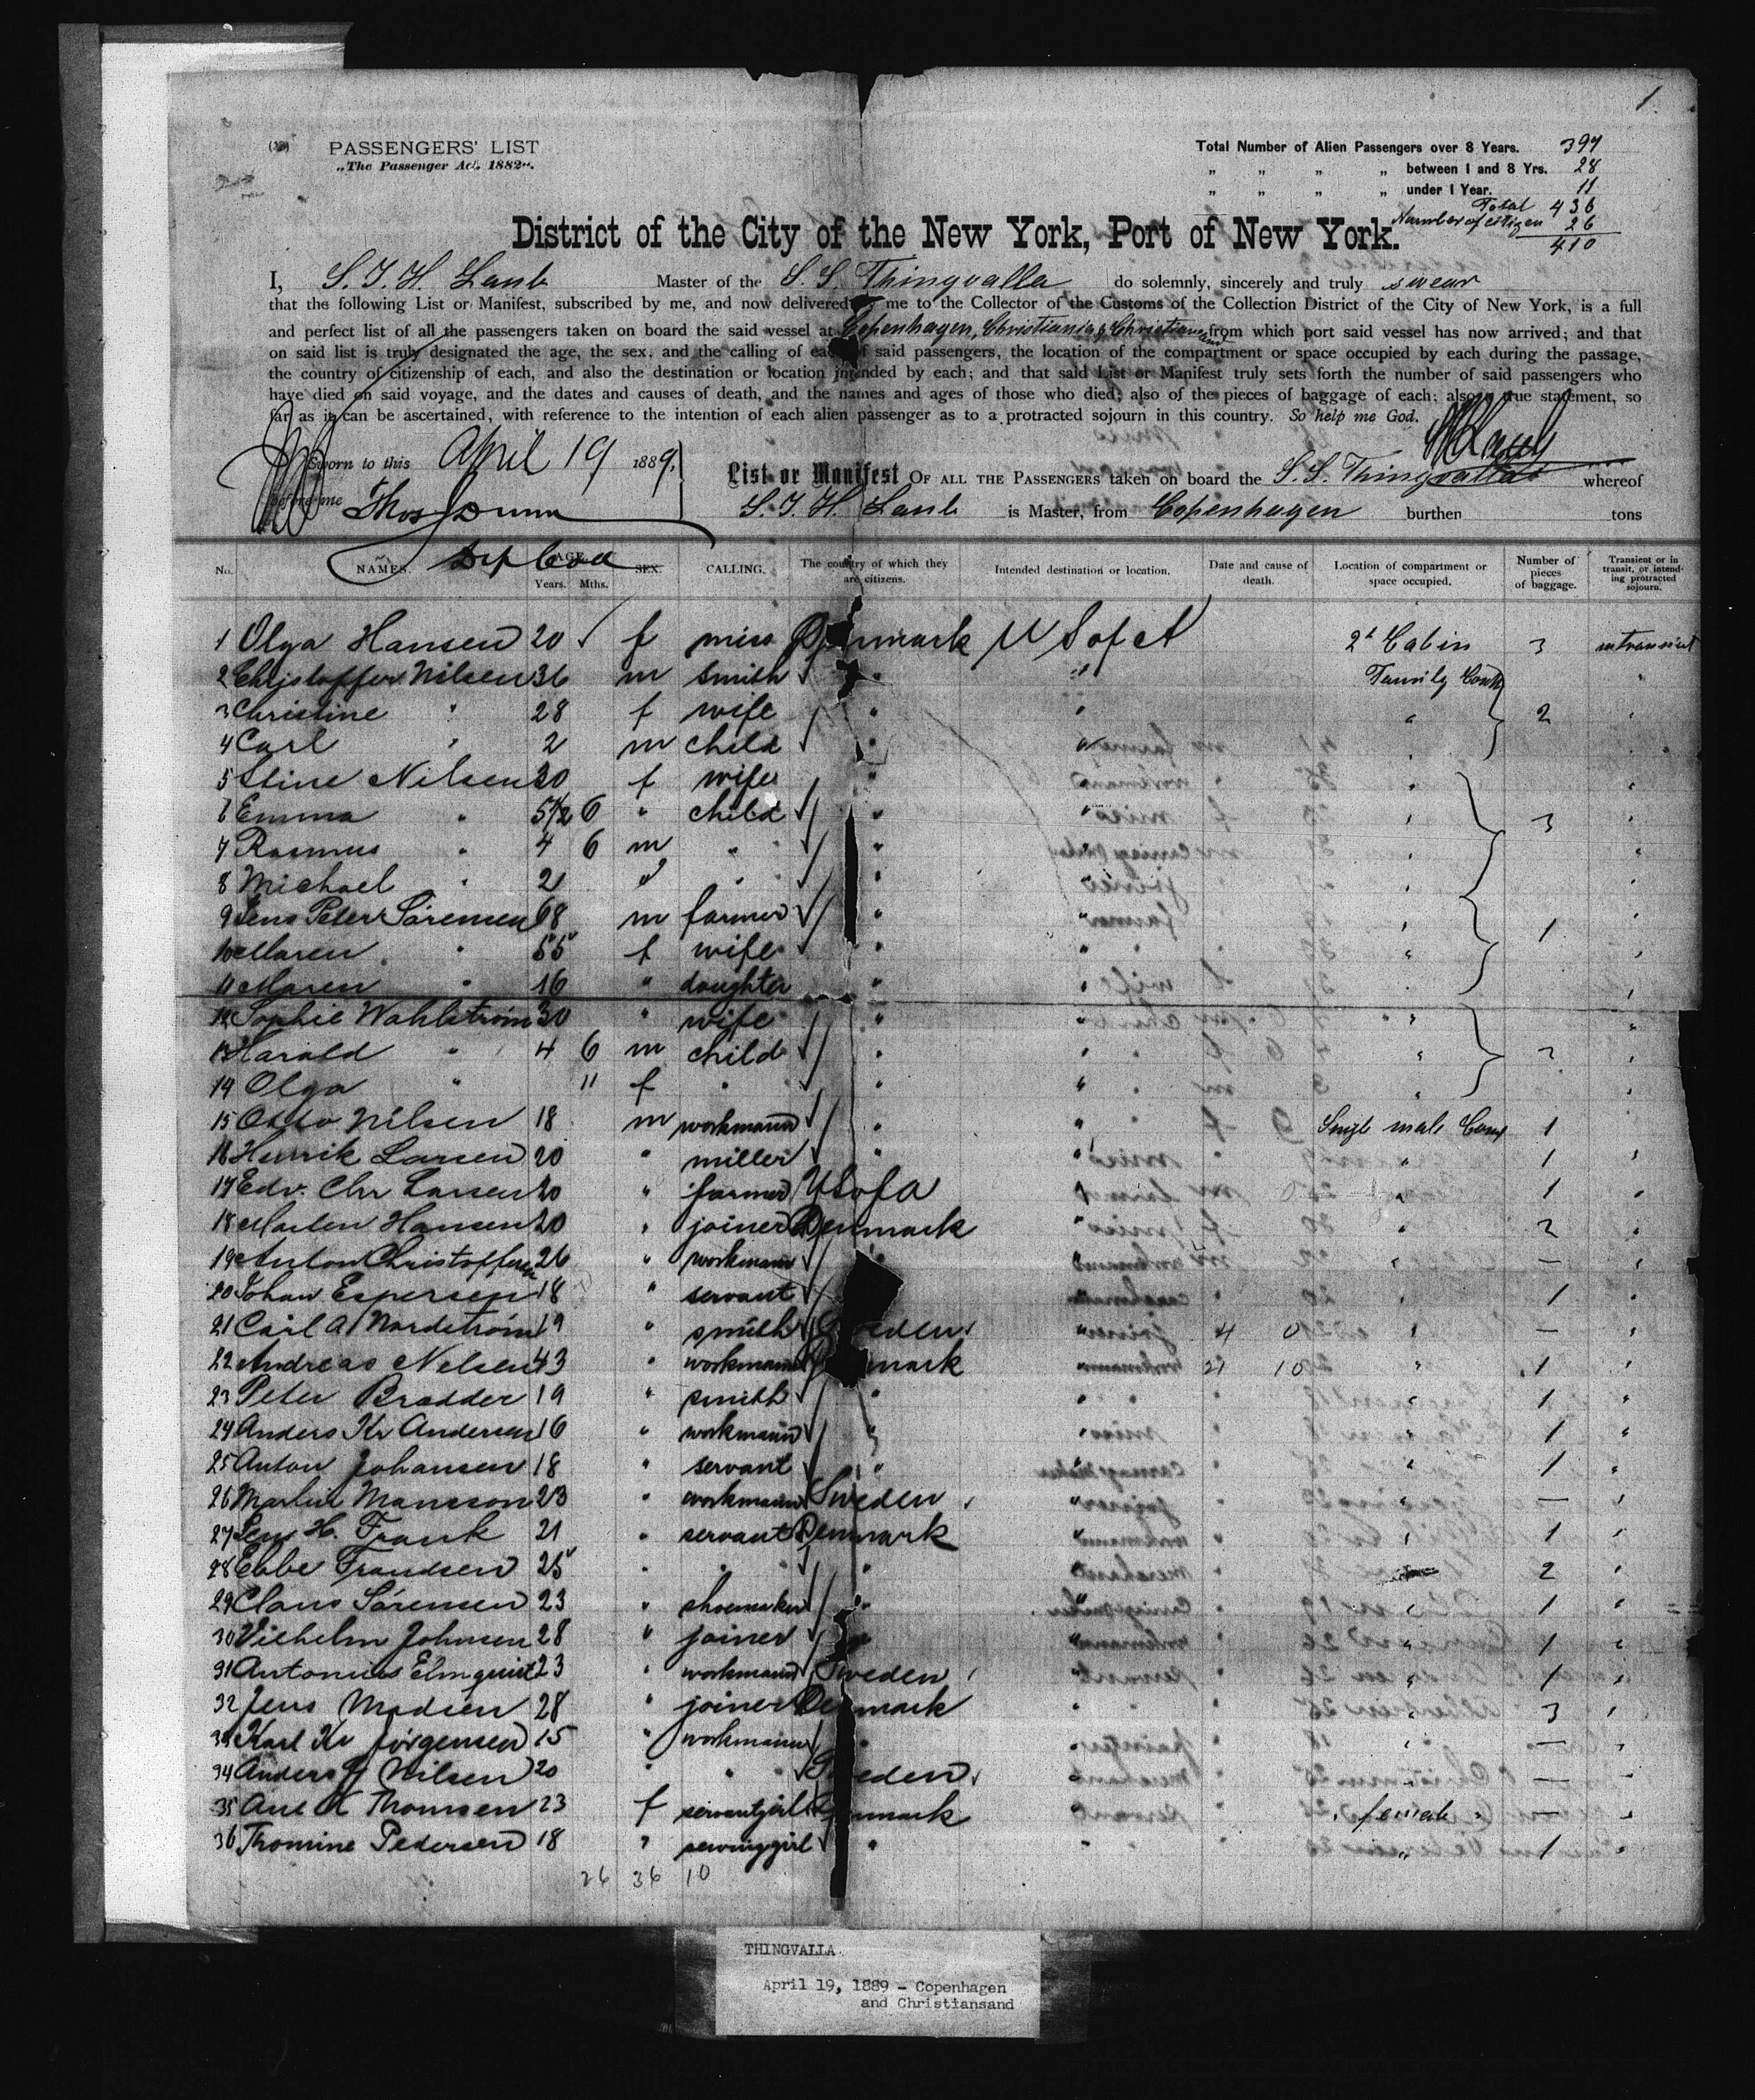 1
PASSENGERS' LIST
„The Passenger Act. 1882".
Total Number of Alien Passengers over 8 Years. 397
„ „ „ „ between 1 and 8 Yrs. 28
„ „ „ „ under 1 Year. 11
Total 436
Number of citizen 26
410
District of the City of the New York, Port of New York.
I, S. T. H. Laub Master of the S. S. Thingvalla do solemnly, sincerely and truly swear
that the following List or Manifest, subscribed by me, and now delivered me to the Collector of the Customs of the Collection District of the City of New York, is a full
and perfect list of all the passengers taken on board the said vessel at Copenhagen, Christiania & Christiansand from which port said vessel has now arrived; and that
on said list is truly designated the age, the sex, and the calling of each of said passengers, the location of the compartment or space occupied by each during the passage,
the country of citizenship of each, and also the destination or location intended by each; and that said List or Manifest truly sets forth the number of said passengers who
have died on said voyage, and the dates and causes of death, and the names and ages of those who died; also of the pieces of baggage of each; also a true statement, so
far as it can be ascertained, with reference to the intention of each alien passenger as to a protracted sojourn in this country. So help me God.
Sworn to this April 19 1889,
before me Thos J Dunn
List or Manifest OF ALL THE PASSENGERS taken on board the S. S. Thingvalla whereof
S. T. H. Laub is Master, from Copenhagen burthen tons
No. NAMES. AGE. Years. Mths. SEX. CALLING. The country of which they are citizens. Intended destination or location. Date and cause of death. Location of compartment or space occupied. Number of pieces of baggage. Transient or in transit, or intending protracted sojourn.
1 Olga Hansen 20 f miss Denmark U S of A 2d Cabin 3 intransit
2 Christoffer Nilsen 36 m smith " " Family "
3 Christine " 28 f wife " " " 2 "
4 Carl " 2 m child " " " "
5 Stine Nilsen 30 f wife " " " "
6 Emma " 5½ 6 " child " " " 3 "
7 Rasmus " 4 6 m " " " " "
8 Michael " 2 " " " " " "
9 Jens Peter Sörensen 68 m farmer " " " 1 "
10 Maren " 55 f wife " " " "
11 Maren " 16 " daughter " " " "
12 Sophie Wahlström 30 " wife " " " "
13 Harald " 4 6 m child " " " 2 "
14 Olga " 11 f " " " " "
15 Otto Nilsen 18 m workmann " " Single male 1 "
16 Henrik Larsen 20 " miller " " " 1 "
17 Edv. Chr Larsen 20 " farmer U S of A " " 1 "
18 Marten Hansen 20 " joiner Denmark " " 2 "
19 Anton Christoffersen 26 " workmann " " " — "
20 Johan Espersen 18 " servant " " 1 "
21 Carl A Nordström 19 " smith Sweden " " — "
22 Andreas Nelsen 43 " workmann Denmark " " 1 "
23 Peter Brodder 19 " smith " " " 1 "
24 Anders Kr Andersen 16 " workmann " " " 1 "
25 Anton Johansen 18 " servant " " " 1 "
26 Martin Mansson 23 " workmann Sweden " " — "
27 Jens H. Frank 21 " servant Denmark " " 1 "
28 Ebbe Frandsen 25 " " " " 2 "
29 Claus Sörensen 23 " shoemaker " " " 1 "
30 Vilhelm Johnsen 28 " joiner " " " 1 "
31 Antonius Elmquist 23 " workmann Sweden " " 1 "
32 Jens Madsen 28 " joiner Denmark " " 3 "
33 Karl Kr Jörgensen 15 " workmann " " " — "
34 Anders J Nilsen 20 " " Sweden " " — "
35 Ane K Thomsen 23 f servantgirl Denmark " " female " — "
36 Thomine Pedersen 18 " sewinggirl " " " 1 "
26 36 10
THINGVALLA.
April 19, 1889 - Copenhagen
and Christiansand